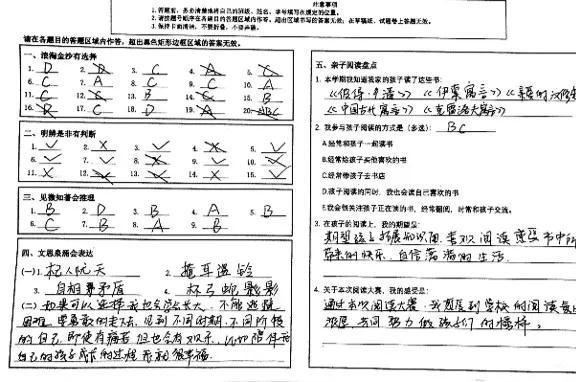 注意事项
1. 答题前，务必清楚地将自己的班级、姓名、学号填写在规定的位置。
2. 请按题号顺序在各题目的答题区域内作答，超出区域书写的答案无效；在草稿纸、试题卷上答题无效。
3. 保持卡面清洁，不要折叠，不要弄破。
请在各题目的答题区域内作答，超出黑色矩形边框区域的答案无效。
一、浪淘金沙有选择
1. D 2. 3. C 4. A 5.
6. C 7. A 8. C 9. C 10. B
11. 12. 13. B 14. 15. B
16. 17. C 18. D 19. 20.
二、明辨是非有判断
1. ✓ 2. × 3. × 4. × 5. ✓
6. ✓ 7. 8. 9. ✓ 10.
11. × 12. 13. × 14. ✓ 15. ✓
三、见微知著会推理
1. B 2. D 3. B 4. A 5. B
6. C 7. B 8. A 9. B
四、文思泉涌会表达
(一)1. 杞人忧天 2. 掩耳盗铃
3. 自相矛盾 4. 杯弓蛇影
(二) 如果可以选择我也会长大，不能逃避
困难 要勇敢的走下去，见到不同时期、不同阶段
的自己 即使有痛苦 但也会有欢乐，比如陪伴
自己的孩子成长的过程 幸福
五、亲子阅读盘点
1. 本学期我知道我家的孩子读了这些书:
《彼得·》《伊索寓言》
《中国古代寓言》《克雷洛夫寓言》
2. 我参与孩子阅读的方式是（多选）: BC
A.经常和孩子一起读书
B.经常给孩子买他喜欢的书
C.经常带孩子去书店
D.孩子阅读的同时，我也会读自己喜欢的书
E.我会很关注孩子正在读的书，经常翻阅，时常和孩子交流。
3. 在孩子的阅读上，我的期望是:
期望孩子拓展知识面，喜欢阅读 感受书中所
带来的快乐，自信 的生活
4. 关于本次阅读大赛，我的感受是:
通过本次阅读大赛，我感展到学校的阅读氛
浓厚 努力做孩子们的榜样。